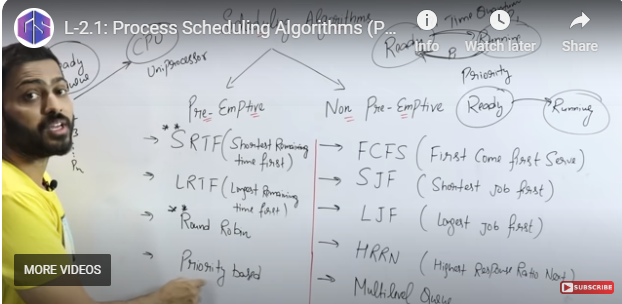 L-2.1: Process Scheduling Algorithms (P...
Info
Watch later
Share
Scheduling Algorithms
Time Quantum
Ready
Running
P1
Priority
CPU
Uniprocessor
Ready
Running
Pre-Emptive
Non Pre-Emptive
** SRTF (Shortest Remaining
time first)
LRTF (Longest Remaining
time first)
** Round Robin
Priority based
FCFS (First Come first Serve)
SJF (Shortest Job first)
LJF (Longest Job first)
HRRN (Highest Response Ratio Next)
Multilevel Queue
MORE VIDEOS
SUBSCRIBE